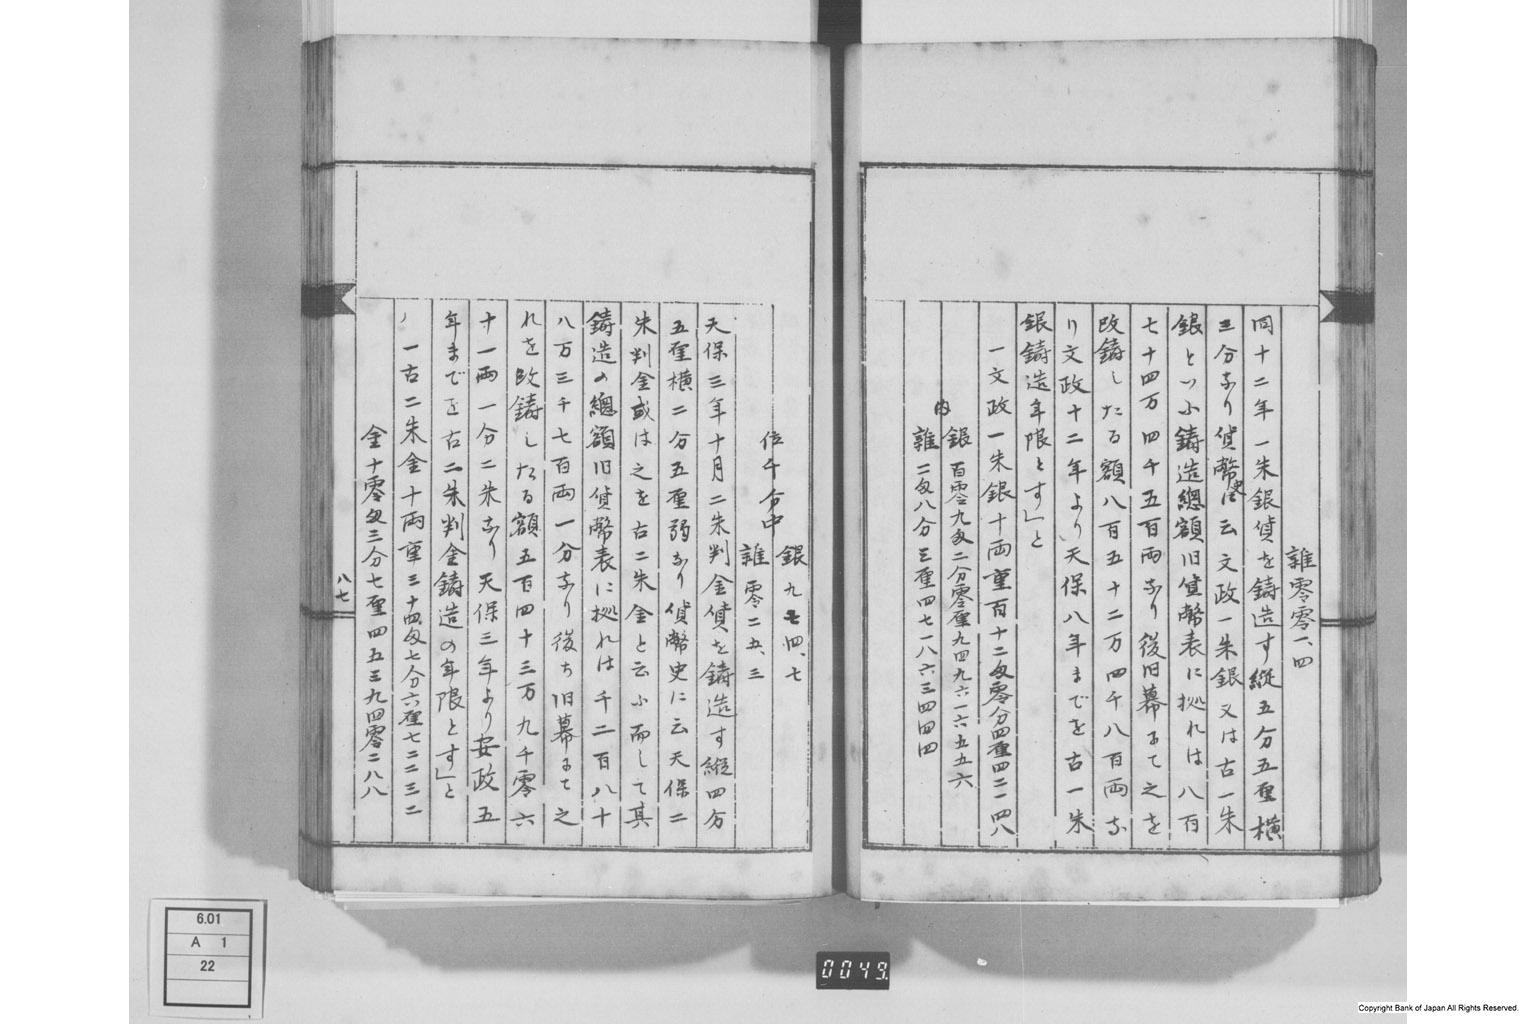 雑零零一、四
同十二年一朱銀貨を鋳造す縦五分五厘横
三分なり貨幣史に云文政一朱銀又は古一朱
銀といふ鋳造總額旧貨幣表に拠れは八百
七十四万四千五百両なり後旧幕にて之を
改鋳したる額八百五十二万四千八百両な
り文政十二年より天保八年までを古一朱
銀鋳造年限とす」と
一文政一朱銀十両重百十二匁零分四厘四二一四八
内
銀百零九匁二分零厘九四九六一六五五六
雑二匁八分三厘四七一八六三四四四
位千分中
銀九七四、七
雑零二五、三
天保三年十月二朱判金貨を鋳造す縦四分
五厘横二分五厘弱なり貨幣史に云天保二
朱判金或は之を古二朱金と云ふ而して其
鋳造の總額旧貨幣表に拠れは千二百八十
八万三千七百両一分なり後ち旧幕にて之
れを改鋳したる額五百四十三万九千零六
十一両一分二朱なり天保三年より安政五
年までを古二朱判金鋳造の年限とす」と
一古二朱金十両重三十四匁七分六厘七二二三二
金十零匁三分七厘四五三九四零二八八
八七
6.01
A 1
22
0049.
Copyright Bank of Japan All Rights Reserved.